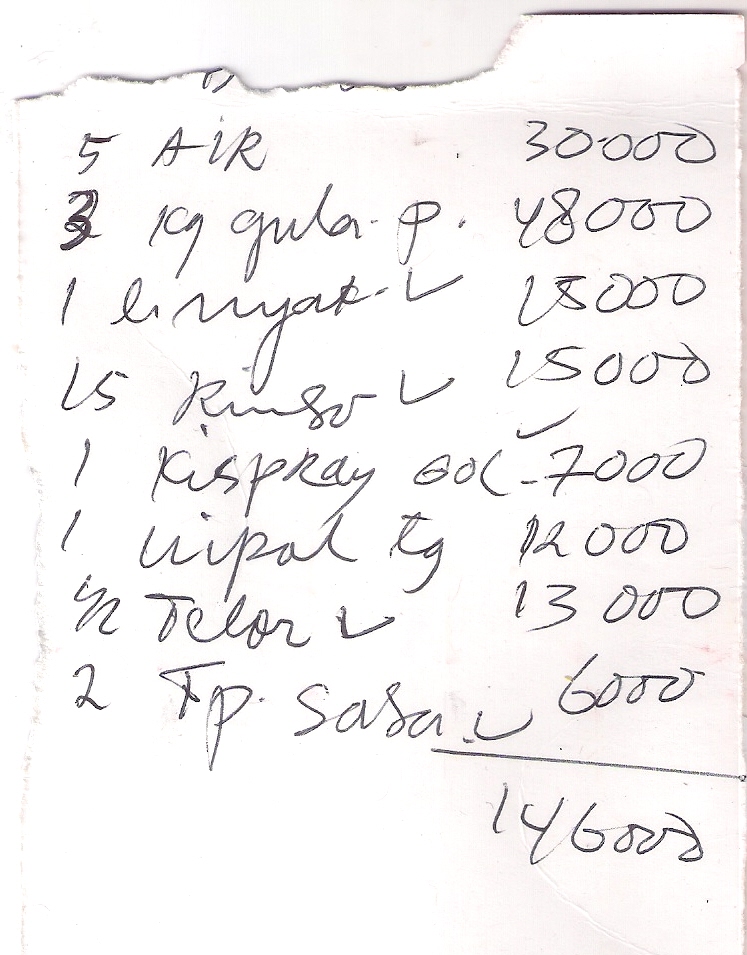 5 AIR 30.000
3 kg gula p. 48000
1 li minyak 15000
15 Rinso 15000
1 Kispray GOC 7000
1 Vipal tg 12000
1/2 Telor 13000
2 Tp. Sasa 6000
146000